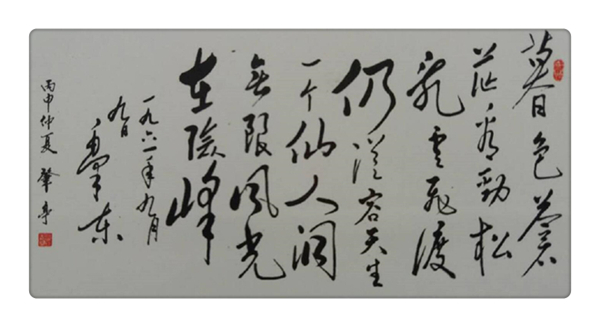 暮色蒼
茫看勁松
乱云飞渡
仍從容天生
一个仙人洞
無限风光
在險峰
一九六一年九月
九日
丙申仲夏 肇